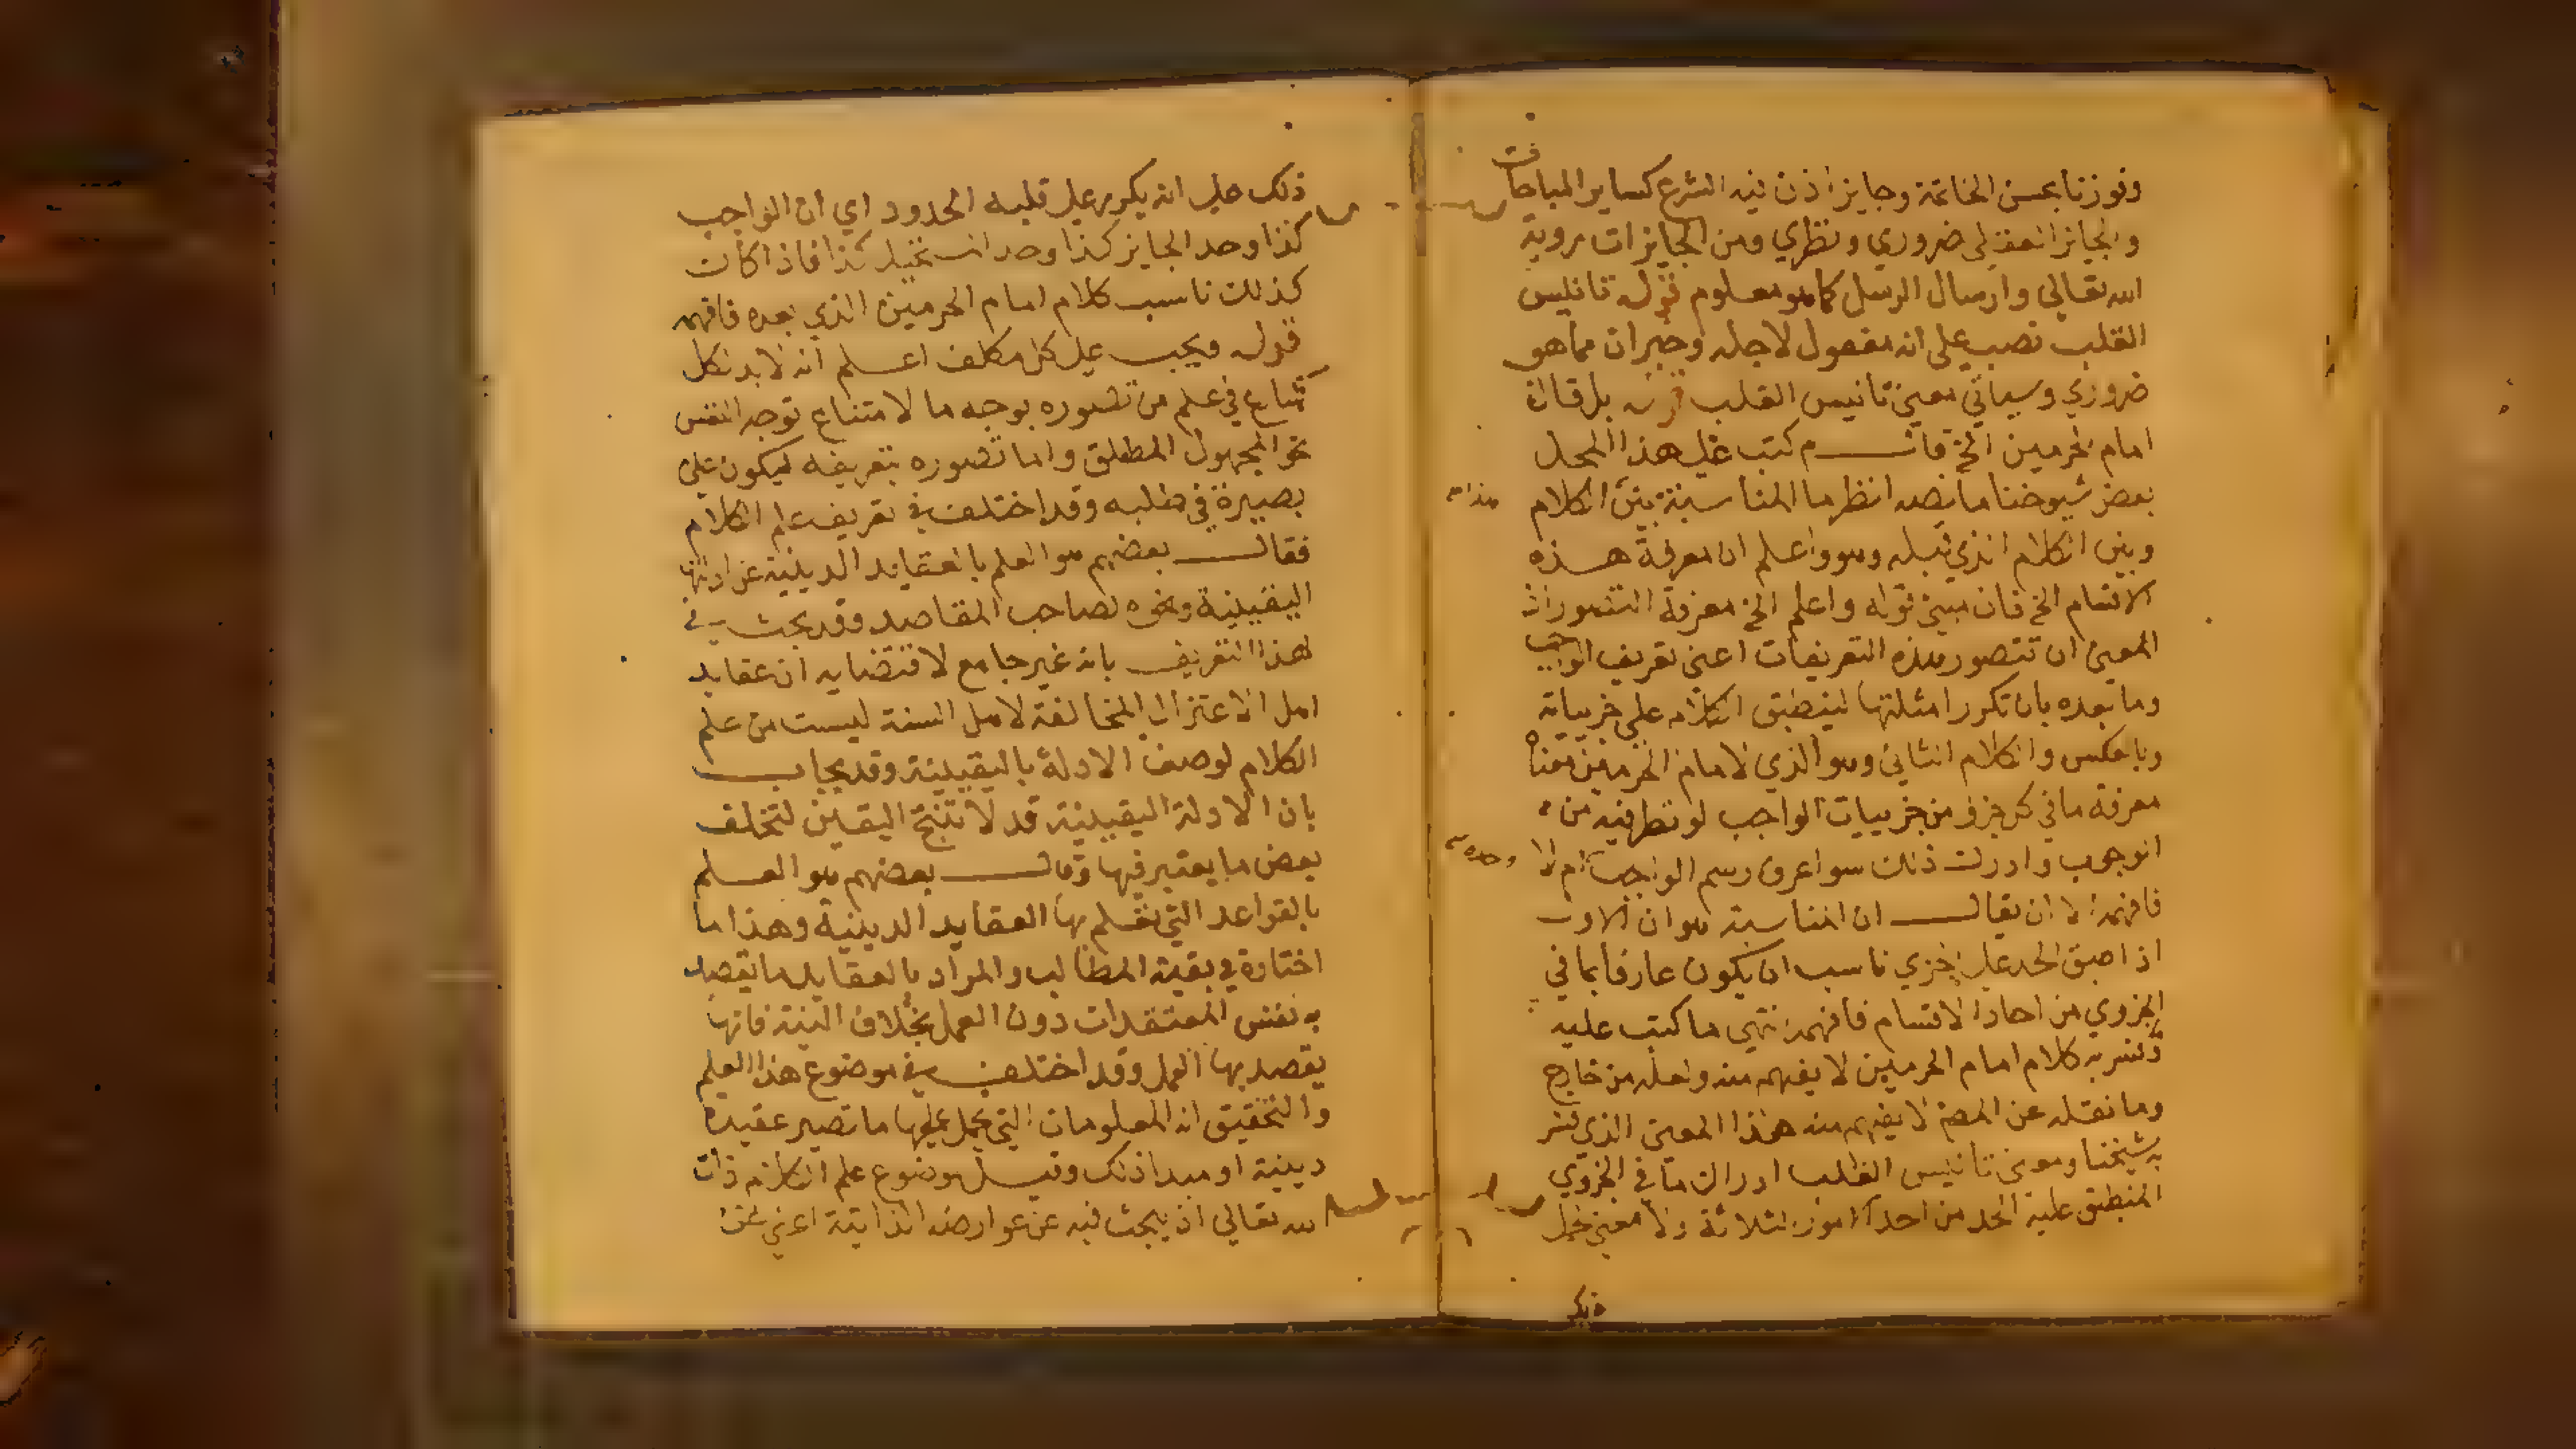 وفوزنا بحسن الخاتمة وجايز اذن فيه الشرع كساير المباحات
والجايز العقلي ضروري ونظري ومن الجايزات روية
الله تعالي وارسال الرسل كما هو معلوم قوله تانيس
القلب نصب علي انه مفعول لاجله وخبر ان مما هو
ضروري وسياتي معني تانيس القلب قوله بل قال
امام الحرمين الخ كتب علي هذا المحل
بعض شيوخنا ما نصه انظر ما المناسبة بين الكلام هذا
وبين الكلام الذي قبله وهو واعلم ان معرفة هذه
الاقسام الخ فان معني قوله واعلم الخ معرفة التصورات
المعني ان تتصور هذه التعريفات اعني تعريف الواجب
وما بعده بان تكرر امثلتها لينطبق الكلام علي جزيياته
وبالعكس والكلام الثاني وهو الذي لامام الحرمين معناه
معرفة ما في كل جزء من جزييات الواجب لو نظر فيه من
الوجوب وادرك ذلك سوا عرف رسم الواجب ام لا
فافهمه الا ان يقال ان المناسبة هو ان الاول
اذا طبق الحد علي الجزي ناسب ان يكون عارفا بما في
الجزوي من احاد الاقسام فافهمه انتهي ما كتب عليه
وتفسر به كلام امام الحرمين لا يفهم منه ولعله من خارج
وما نقله عن المصنف لا يفهم منه هذا المعني الذي فسر
به شيخنا ومعني تانيس القلب ادراك ما في الجزوي
المنطبق عليه الحد من احد الامور الثلاثة ولا معني لحمل
ذلك
ذلك علي انه يكرر علي قلبه الحدود اي ان الواجب
كذا وحد الجايز كذا وحد المستحيل كذا فاذا كان
كذلك ناسب كلام امام الحرمين الذي بعده فافهم
قوله ويجب علي كل مكلف اعلم انه لا بد لكل
شارع في علم من تصوره بوجه ما لامتناع توجه النفس
نحو المجهول المطلق واما تصوره بتعريفه ليكون علي
بصيرة في طلبه وقد اختلف في تعريف علم الكلام
فقال بعضهم هو العلم بالعقايد الدينية عن ادلتها
اليقينية ونحوه لصاحب المقاصد وقد بحث في
هذا التعريف بانه غير جامع لاقتضايه ان عقايد
اهل الاعتزال المخالفة لاهل السنة ليست من علم
الكلام لوصف الادلة باليقينية وقد يجاب
بان الادلة اليقينية قد لا تنتج اليقين لتخلف
بعض ما يعتبر فيها وقال بعضهم هو العلم
بالقواعد التي تعلم بها العقايد الدينية وهذا ما
اختاره في بقية المطالب والمراد بالعقايد ما يقصد
به نفس المعتقدات دون العمل بخلاف النية فانها
يقصد بها العمل وقد اختلف في موضوع هذا العلم
والتحقيق انه المعلومات التي يحمل عليها ما تصير عقيدة
دينية او مبدا ذلك وقيل موضوع علم الكلام ذات
الله تعالي اذ يبحث فيه عن عوارضه الذاتية اعني